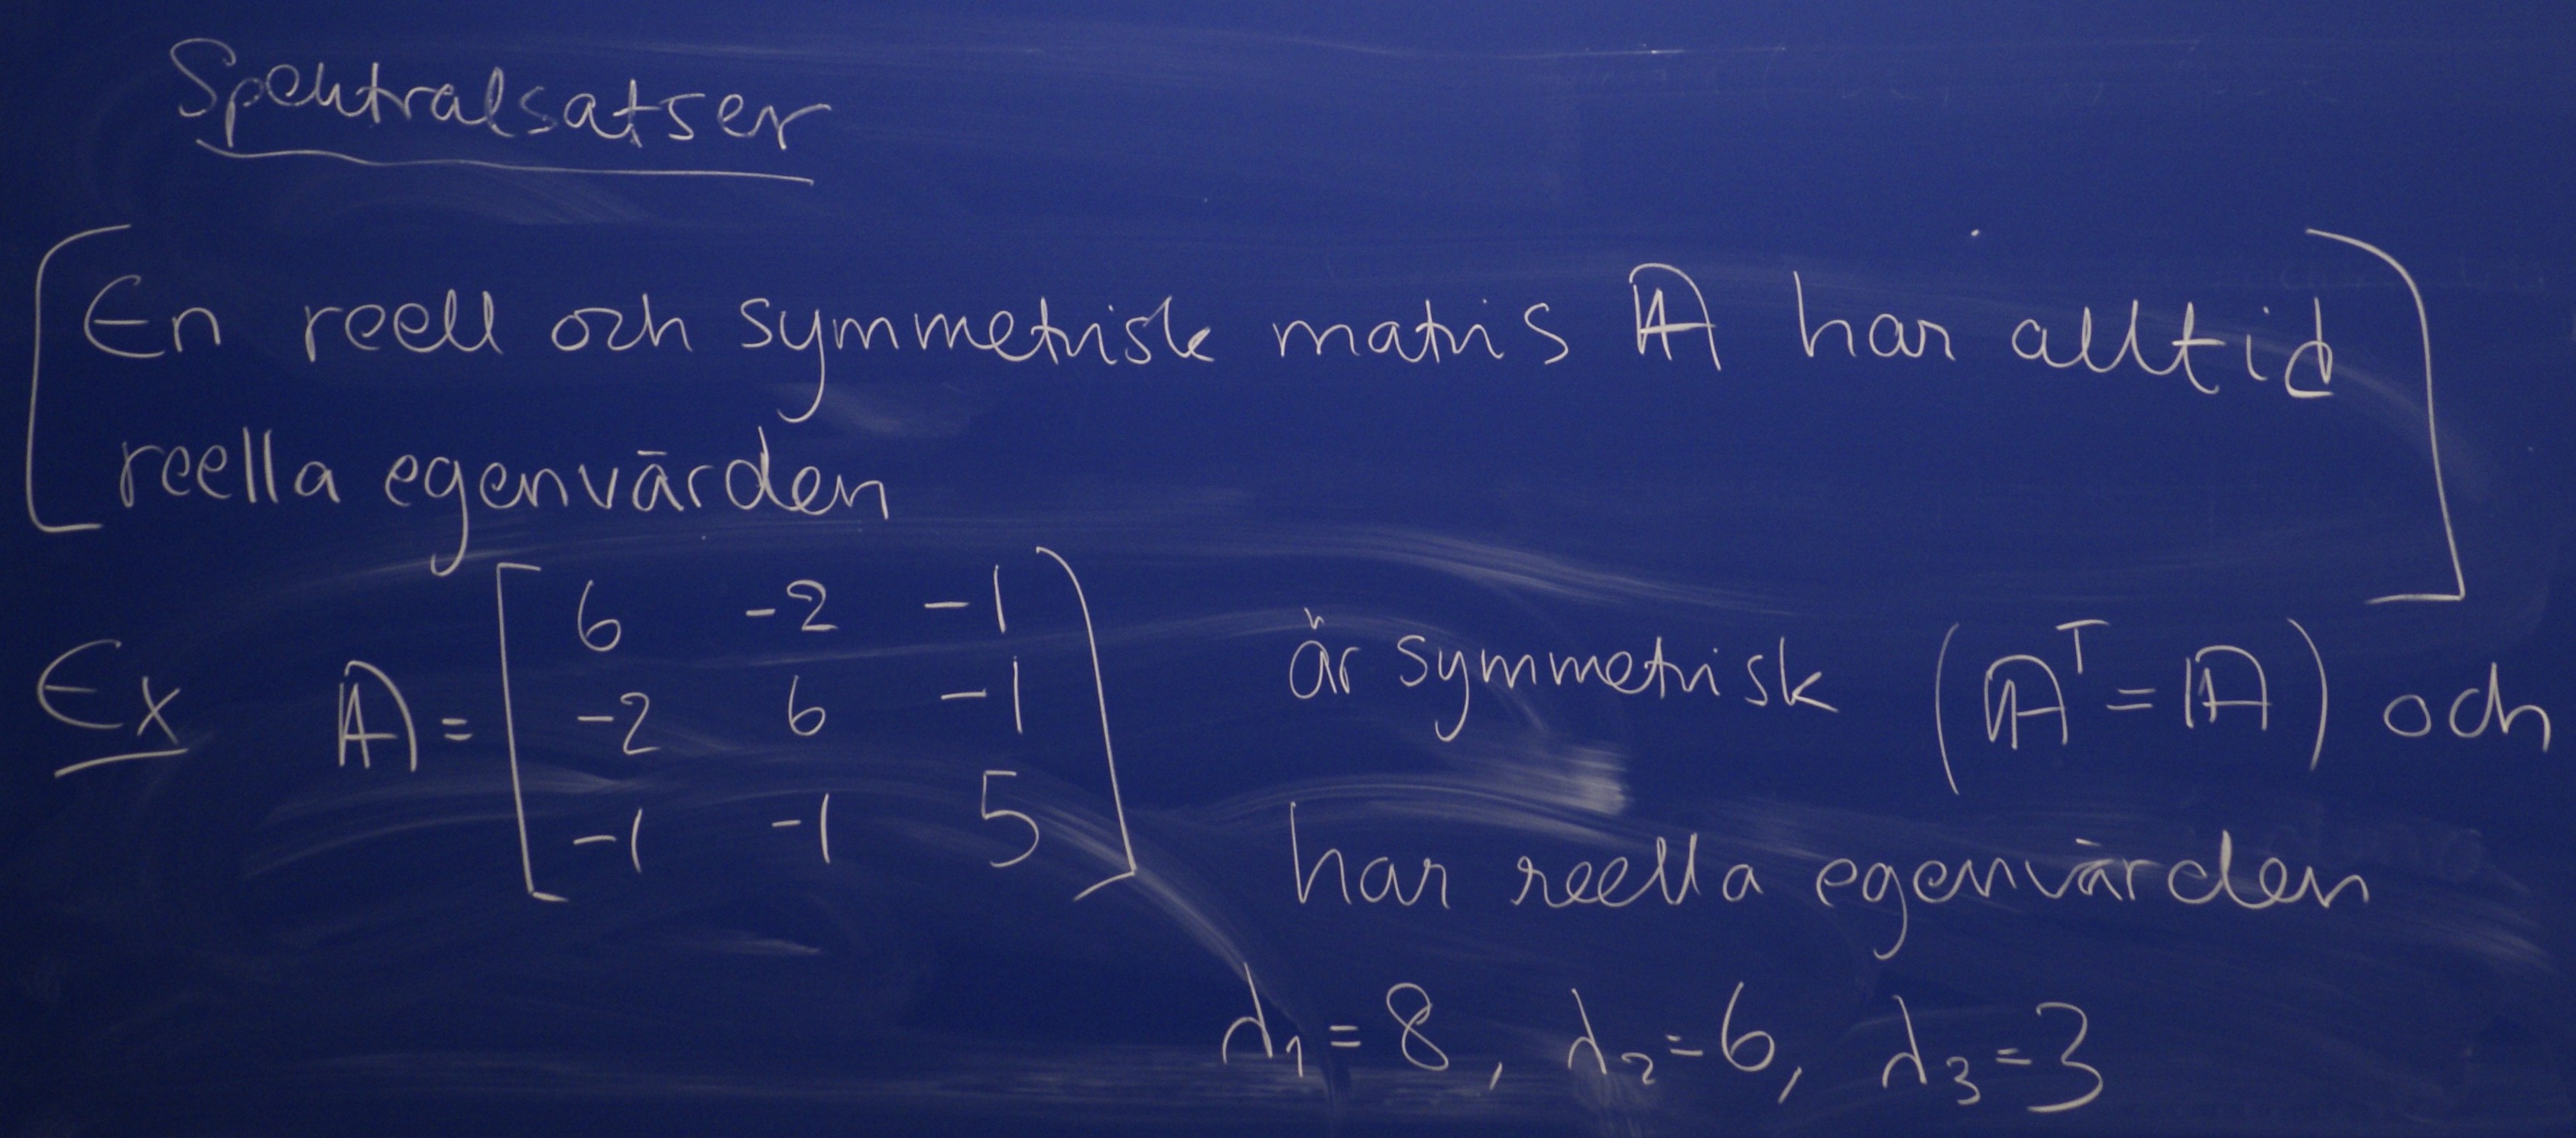 Spektralsatser
En reell och symmetrisk matris A har alltid
reella egenvärden
Ex A = [ 6 -2 -1
-2 6 -1
-1 -1 5 ]
är symmetrisk (Aᵀ = A) och
har reella egenvärden
λ₁ = 8, λ₂ = 6, λ₃ = 3